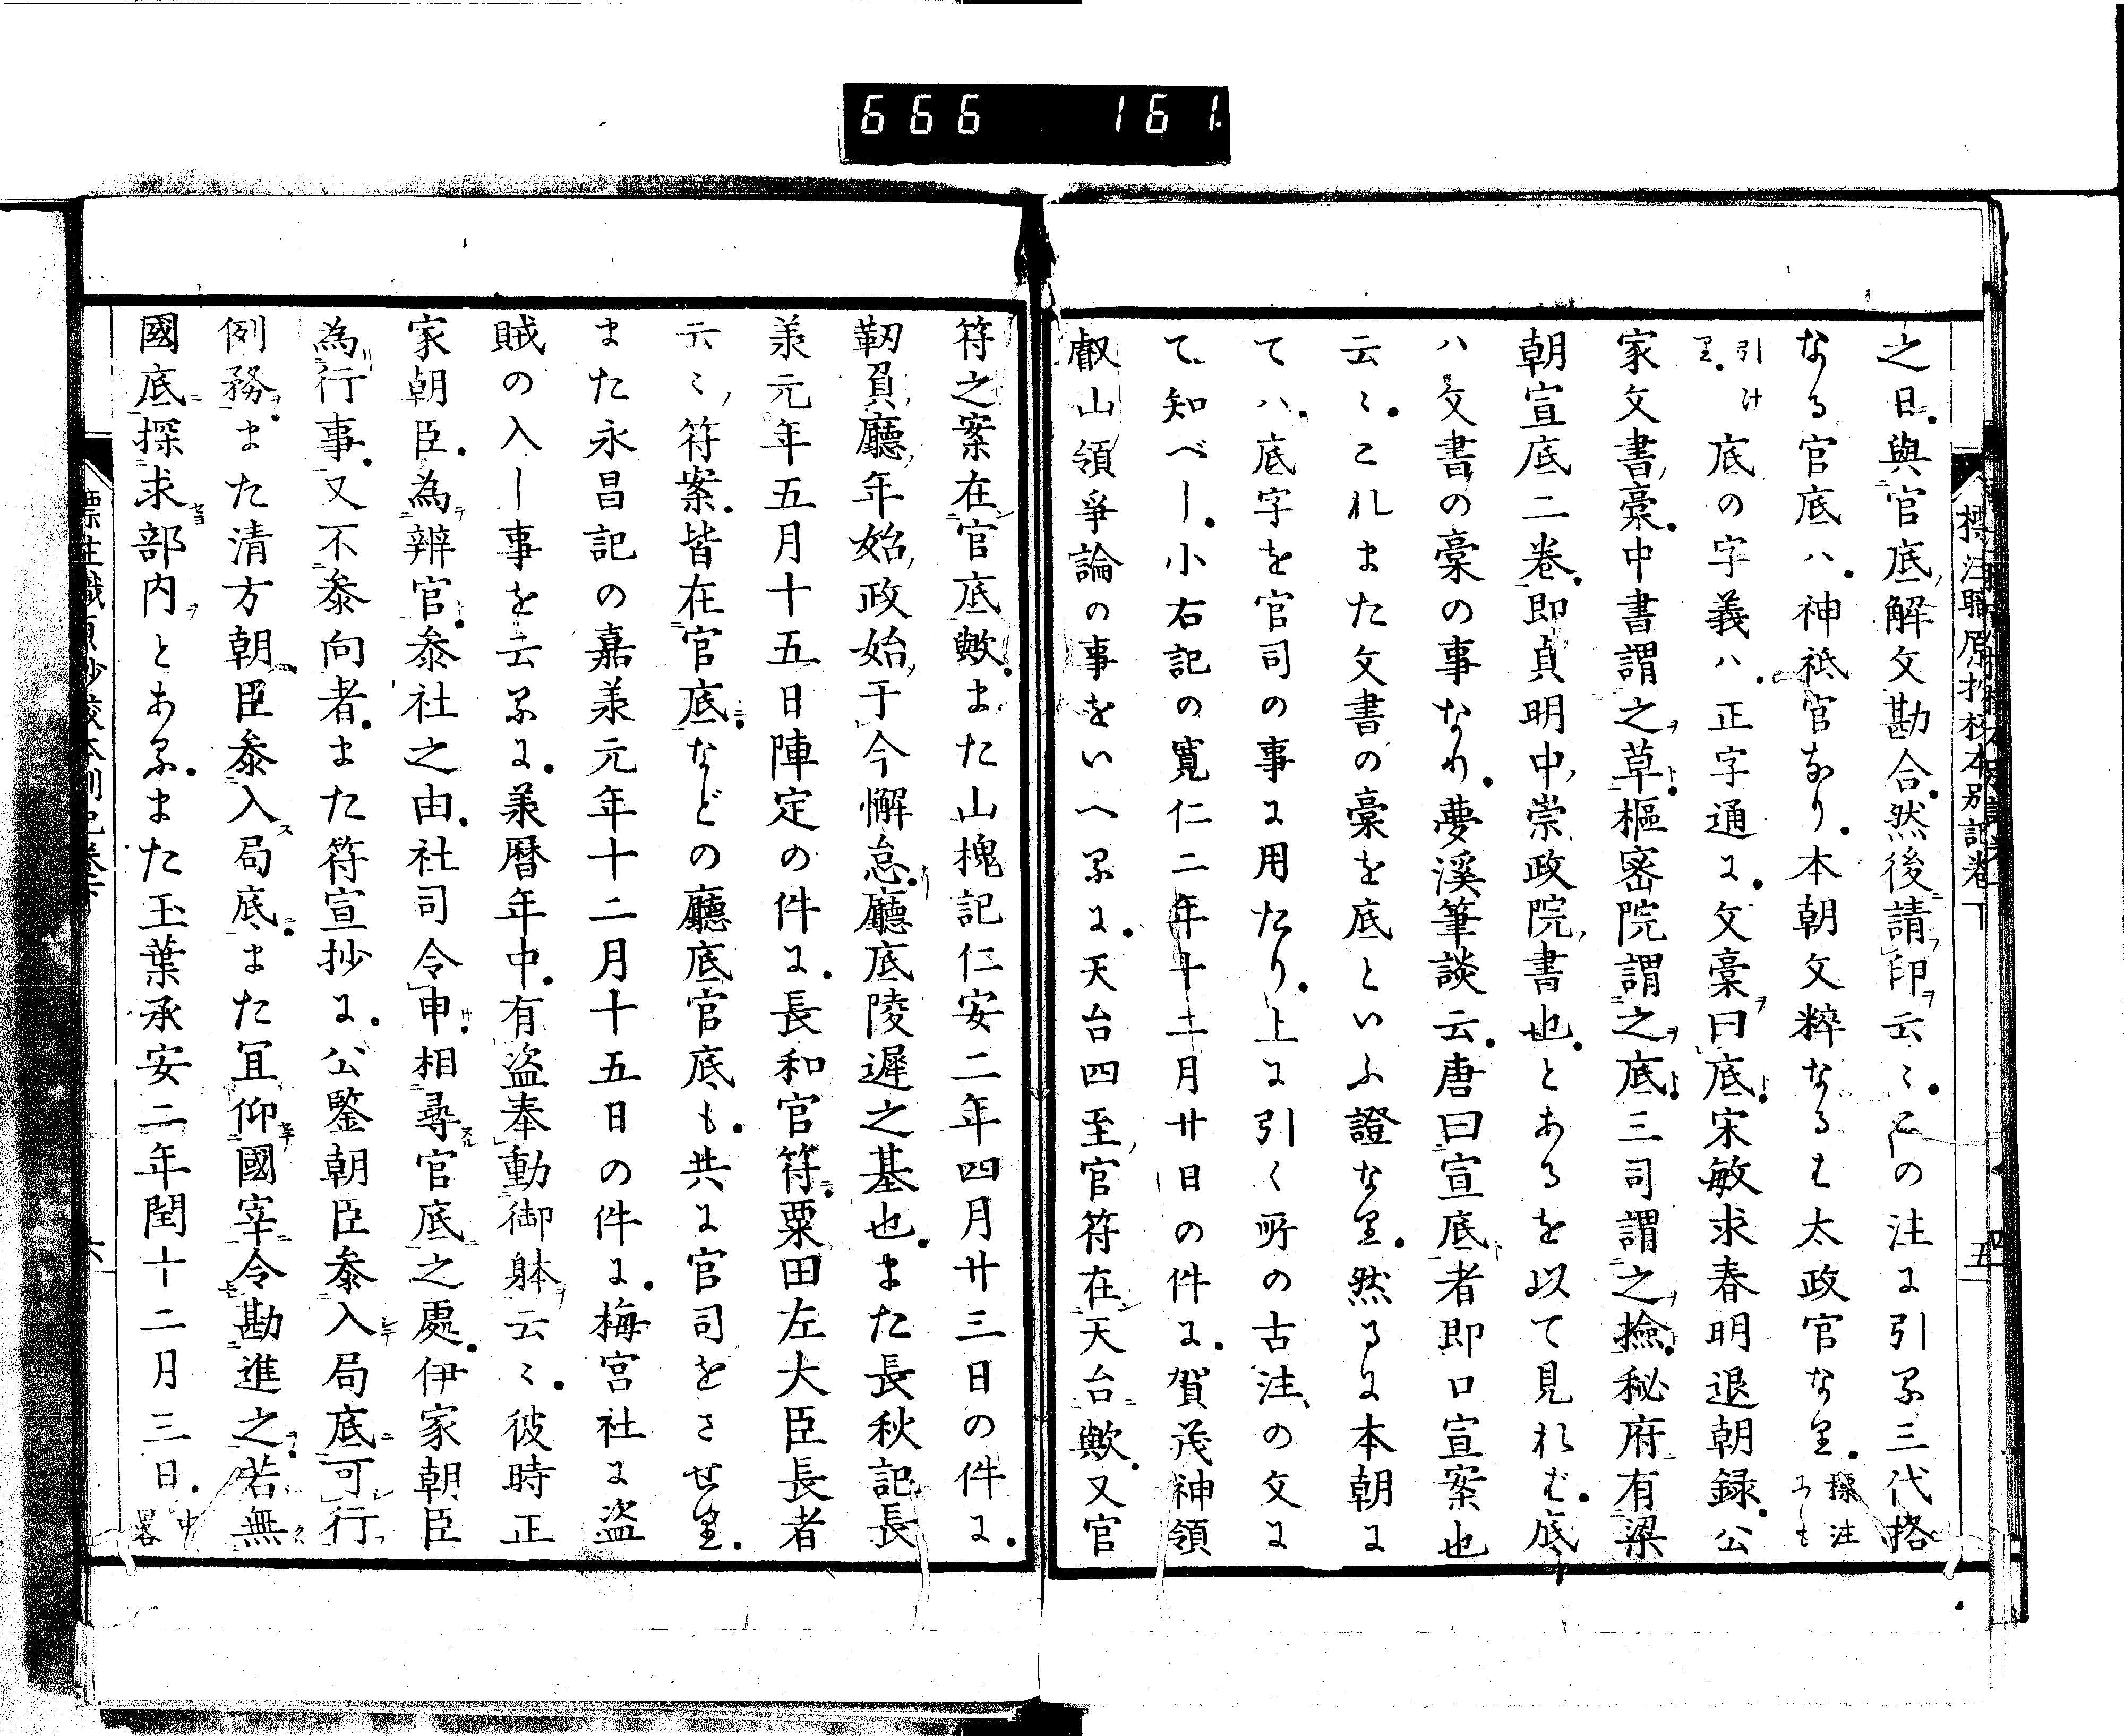 666 161
標注職原抄校本別記卷下
五
之日。與官底、解文勘合。然後請印云〻。この注に引る三代格
なる官底ハ。神祇官なり。本朝文粹なるは太政官なり。標注にも
引けり。底の字義ハ。正字通に。文稾曰底。宋敏求春明退朝録。公
家文書、稾。中書謂之草。樞密院謂之底。三司謂之撿。秘府有梁
朝宣底二卷。即貞明中、崇政院、書也。とあるを以て見れば。底
ハ文書の稾の事なり。夢溪筆談云。唐曰宣底者即口宣案也
云〻。これまた文書の稾を底といふ證なり。然るに本朝に
てハ。底字を官司の事に用たり。上に引く所の古注の文に
て知べし。小右記の寛仁二年十二月廿日の件に。賀茂神領
叡山領爭論の事をいへるに。天台四至、官符在天台歟。又官
符之案在官底歟。また山槐記仁安二年四月廿三日の件に。
靭負廳、年始、政始、于今懈怠。廳底陵遲之基也。また長秋記長
羕元年五月十五日陣定の件に。長和官符。粟田左大臣長者
云〻、符案。皆在官底。などの廳底官底も。共に官司をさせり。
また永昌記の嘉羕元年十二月十五日の件に。梅宮社に盗
賊の入し事を云るに。羕暦年中。有盗奉動御躰云〻。彼時正
家朝臣。為辨官。叅社之由。社司令申。相尋官底之處。伊家朝臣
為行事。又不叅向者。また符宣抄に。公鑒朝臣叅入局底可行
例務。また清方朝臣叅入局底。また冝仰國宰令勘進之。若無
國底探求部内とある。また玉葉承安二年閏十二月三日。中畧
六